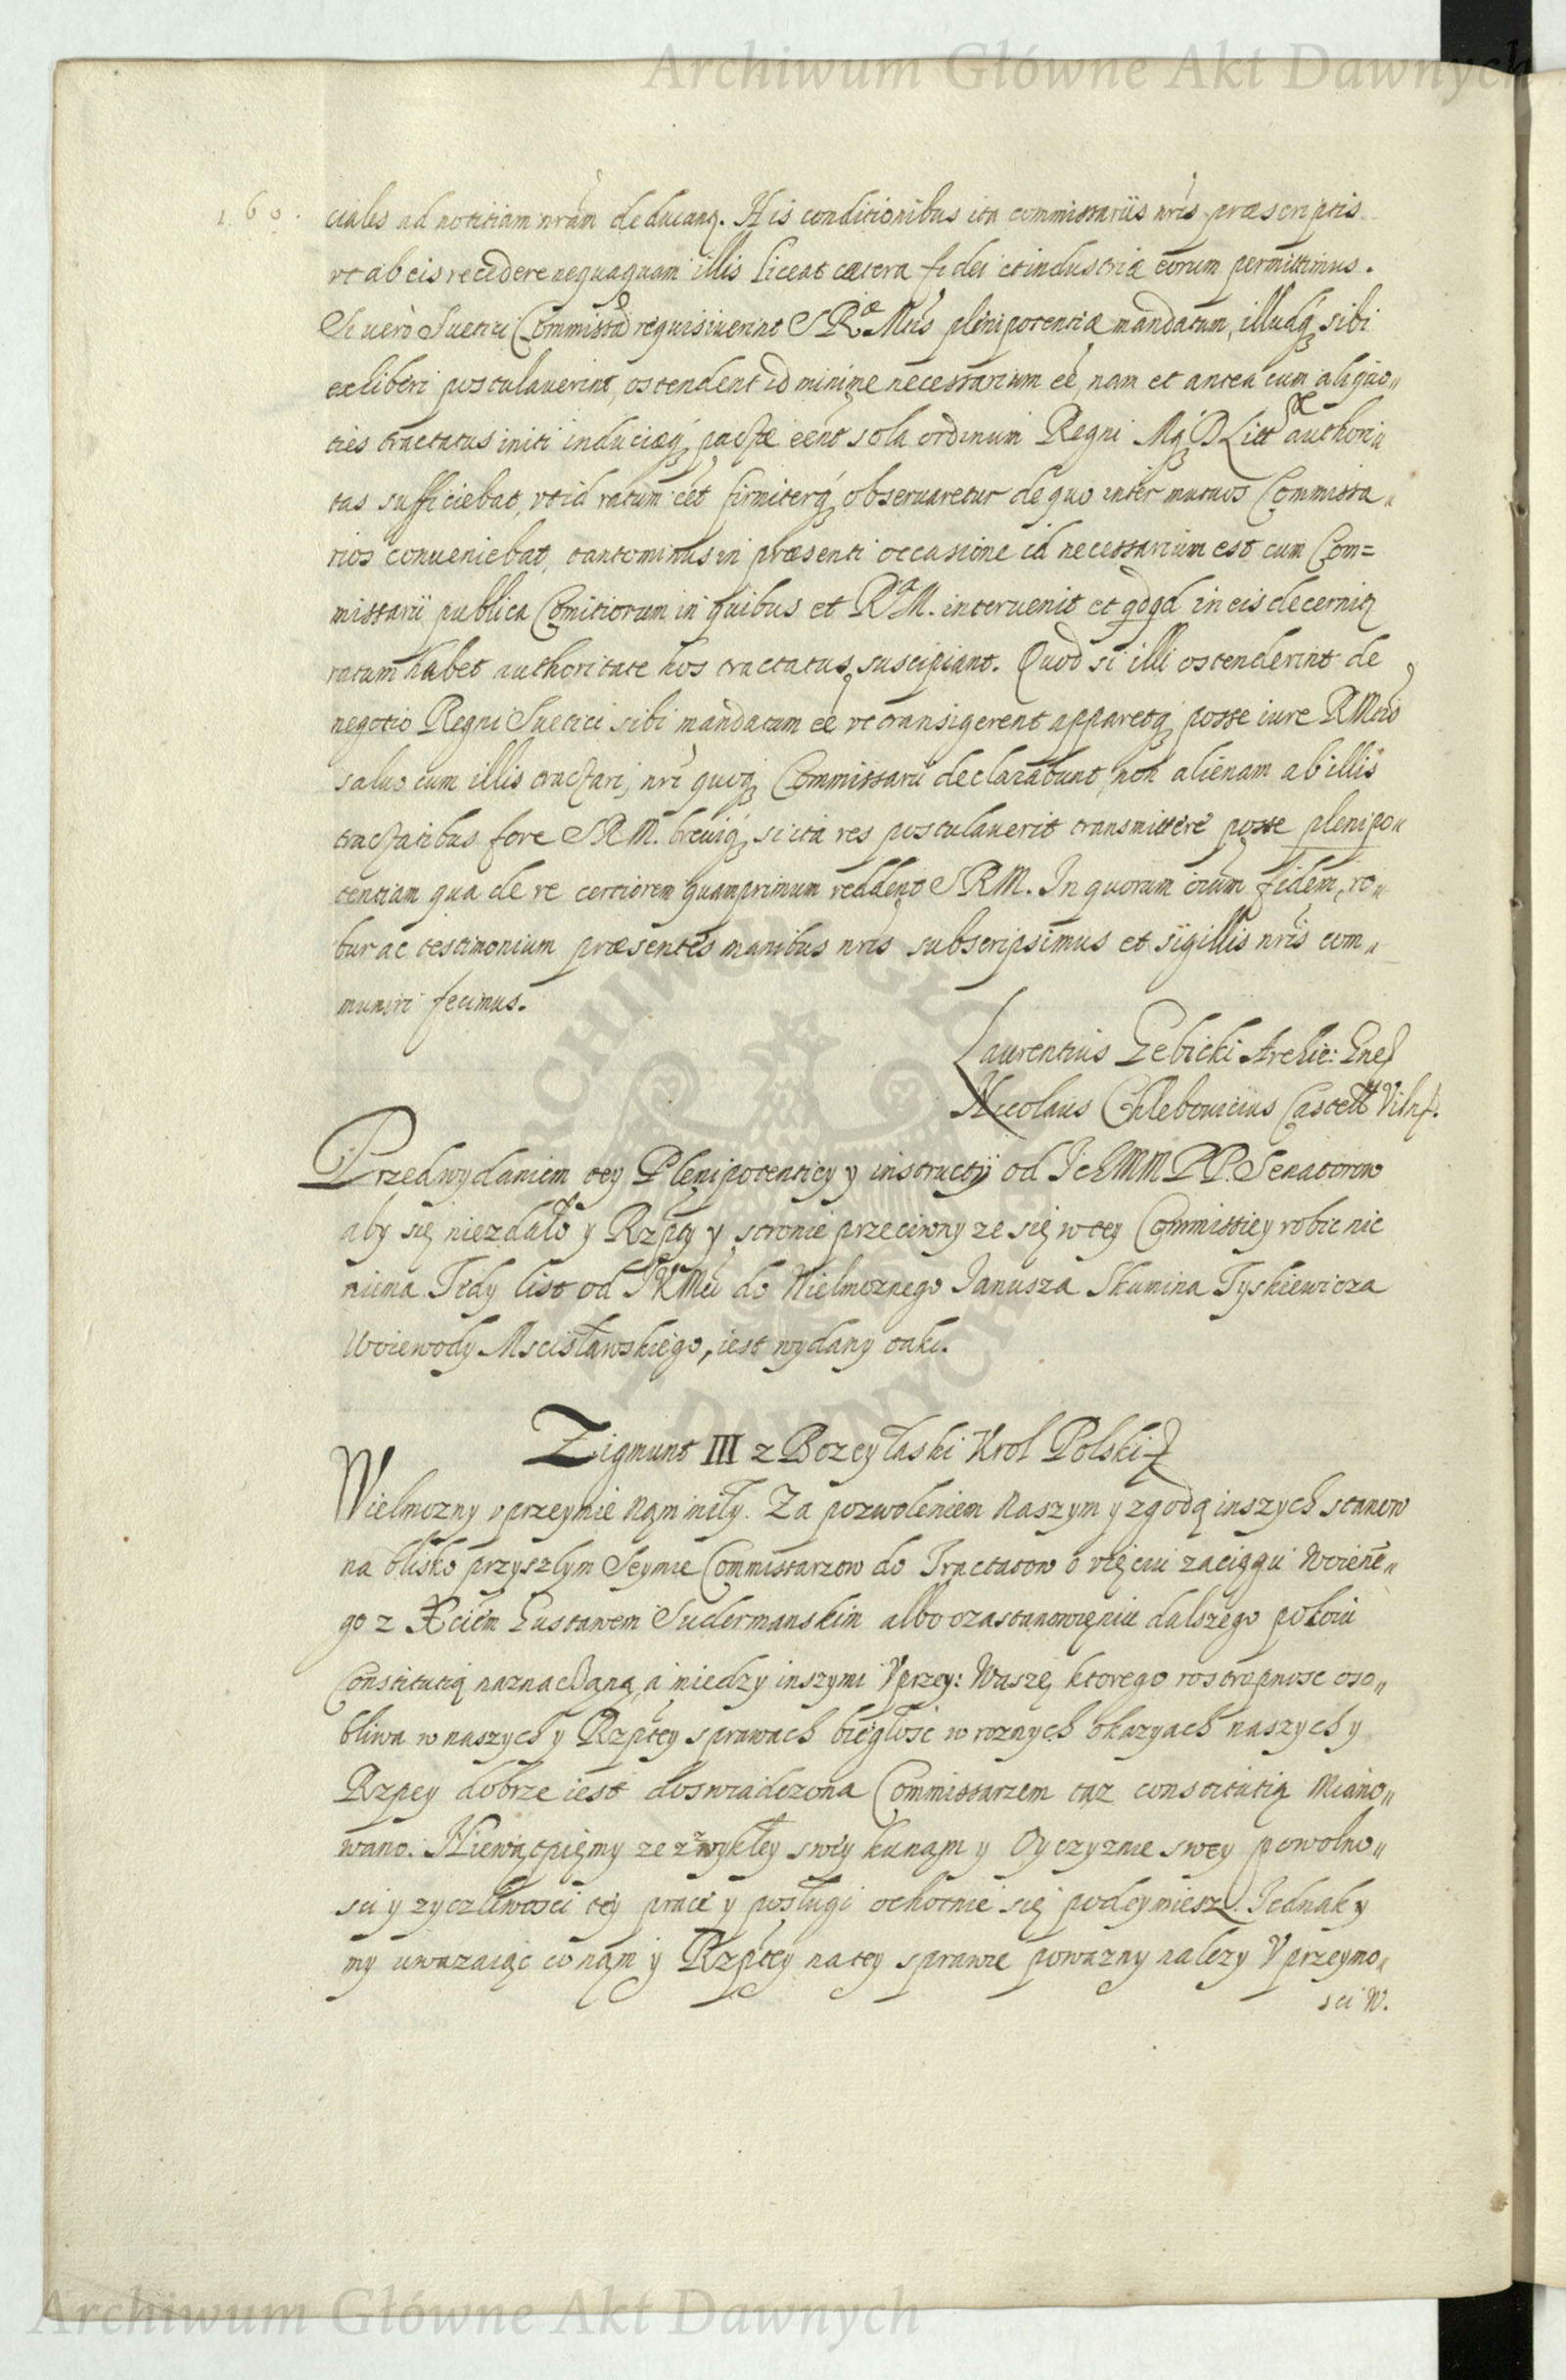 Archiwum Główne Akt Dawnych
160.
ciales ad notitiam nram deducanq. His conditionibus ita commissariis nris præscriptis
vt ab eis recedere nequaquam illis liceat cætera fidei et industriæ eorum permittimus.
Si uero Suetici Commissarii requisiuerint S Ræ Mtis plenipotentiæ mandatum, illudq sibi
exhiberi postulauerint, ostendent id minime necessarium eē, nam et antea cum aliquo„
ties tractatus initi induciæq pactæ eent sola ordinum Regni Mq D Litt authori„
tas sufficiebat, vt id ratum eēt firmiterq obseruaretur de quo inter mutuos Commissa„
rios conueniebat, tanto minus in præsenti occasione id necessarium est cum Com=
missarii publica Comitiorum in quibus et Ra M. interuenit et qdqd in eis decernitq
ratum habet authoritate hos tractatus suscipiant. Quod si illi ostenderint de
negotio Regni Suetici sibi mandatum eē vt transigerent apparetq posse iure RMtis
saluo cum illis tractari, nri quoq Commissarii declarabunt, non alienam ab illis
tractatibus fore S R M. breuiq si ita res postulauerit transmittere posse plenipo„
tentiam qua de re certiorem quamprimum reddent SRM. In quorum oium fidem, ro„
bur ac testimonium præsentes manibus nris subscripsimus et sigillis nris com„
muniri fecimus.
Laurentius Gebicki Archie: Gnes
Nicolaus Chlebouicius Castell Vilns.
Przed wydaniem tey Plenipotenticy y instructii od IchMM PP. Senatorow
aby się niezdało y Rzptey y stronie przeciwny ze się w tey Commissiey robic nic
niema Tedy list od JKMci do Wielmoznego Janusza Skumina Tyskiewicza
Woiewody Mscisławskiego, iest wydany taki.
Zigmunt III z Bozey łaski Krol Polski
Wielmozny vprzeymie nąm miły. Za pozwoleniem naszym y zgodą inszych stanow
na blisko przyszlym Seymie Commissarzow do Tractatow o vięciu zaciągu Woienē„
go z Xciem Gustawem Sudermanskim albo o zastanowieniu dalszego pokoiu
Constitutią naznaczaną, a miedzy inszymi Vprzey: Waszę ktorego rostropnosc oso„
bliwa w naszych y Rzptey sprawach biegłosc w roznych okazyach naszych y
Rzpey dobrze iest doswiadczona Commissarzem taz constitutią miano„
wano. Niewątpięmy ze zwykłey swey ku nąm y Oyczyznie swey powolno„
sci y zyczliwosci tey prace y posługi ochotnie się podeymiesz. Jednak y
my uwazaiąc co nąm y Rzptey na tey sprawie powazny nalezy Vprzeymo„
sci W.
Archiwum Główne Akt Dawnych